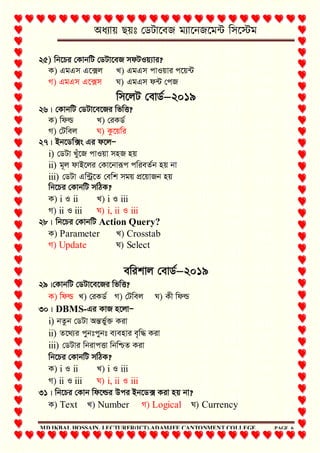 অধ্যায় ছয়ঃ ডেটাবেজ ম্যানেজমেন্ট সিস্টেম
২৫) নিচের কোনটি ডেটাবেজ সফটওয়্যার?
ক) এমএস এক্সেল খ) এমএস পাওয়ার পয়েন্ট
গ) এমএস এক্সেস ঘ) এমএস ফন্ট পেজ
সিলেট বোর্ড–২০১৯
২৬। কোনটি ডেটাবেজের ভিত্তি?
ক) ফিল্ড খ) রেকর্ড
গ) টেবিল ঘ) কুয়েরি
২৭। ইনডেক্সিং এর ফলে–
i) ডেটা খুঁজে পাওয়া সহজ হয়
ii) মূল ফাইলের কোনোরূপ পরিবর্তন হয় না
iii) ডেটা এন্ট্রিতে বেশি সময় প্রয়োজন হয়
নিচের কোনটি সঠিক?
ক) i ও ii খ) i ও iii
গ) ii ও iii ঘ) i, ii ও iii
২৮। নিচের কোনটি Action Query?
ক) Parameter খ) Crosstab
গ) Update ঘ) Select
বরিশাল বোর্ড–২০১৯
২৯।কোনটি ডেটাবেজের ভিত্তি?
ক) ফিল্ড খ) রেকর্ড গ) টেবিল ঘ) কী ফিল্ড
৩০। DBMS-এর কাজ হলো–
i) নতুন ডেটা অন্তর্ভুক্ত করা
ii) তথ্যের পুনঃপুনঃ ব্যবহার বৃদ্ধি করা
iii) ডেটার নিরাপত্তা নিশ্চিত করা
নিচের কোনটি সঠিক?
ক) i ও ii খ) i ও iii
গ) ii ও iii ঘ) i, ii ও iii
৩১। নিচের কোন ফিল্ডের উপর ইনডেক্স করা হয় না?
ক) Text খ) Number গ) Logical ঘ) Currency
MD IKBAL HOSSAIN, LECTURER(ICT),ADAMJEE CANTONMENT COLLEGE PAGE 6